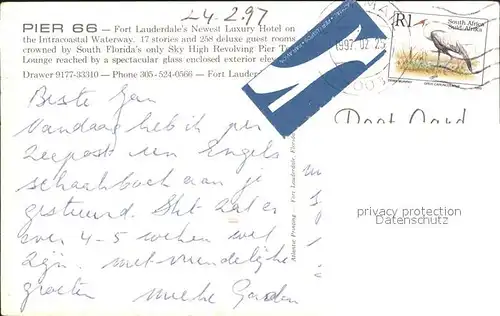 24.2.97
PIER 66 — Fort Lauderdale's Newest Luxury Hotel on
the Intracoastal Waterway. 17 stories and 256 deluxe guest rooms
crowned by South Florida's only Sky High Revolving Pier T
Lounge reached by a spectacular glass enclosed exterior elev
Drawer 9177-33310 — Phone 305-524-0566 — Fort Lauder
R1 South Africa
Suid-Afrika
1997 02 25
Post Card
Beste Jan
Vandaag heb ik per
Zeepost een Engels
schaakboek aan je
gestuurd. Het zal er
over 4-5 weken wel
zijn. met vriendelijke
groeten
privacy protection